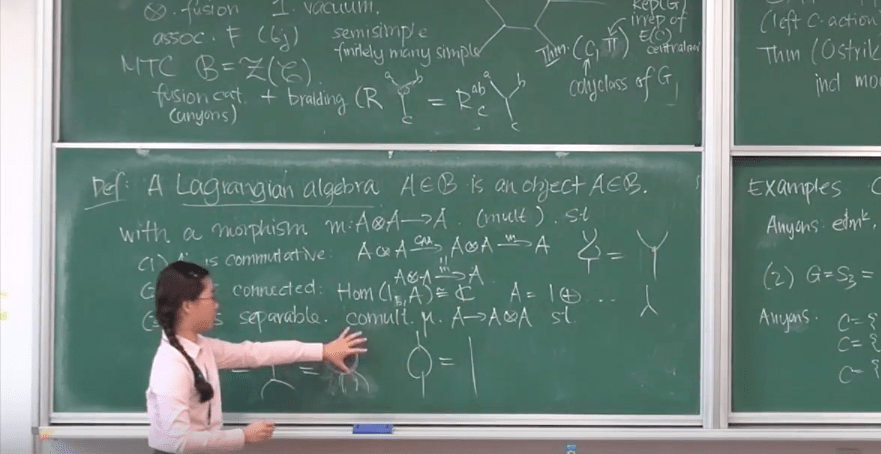 ⊗. fusion 1. vacuum.
assoc. F (6j) semisimple
finitely many simple
MTC B = Z(C).
fusion cat. + braiding (R = R^{ab}_c
(anyons)
Rep(G)
irrep of
E(C)
centralizer
Thm. (C, π)
conj class of G
(left C-action
Thm (Ostrik
ind mo
Def: A Lagrangian algebra A∈B is an object A∈B.
with a morphism m: A⊗A→A. (mult). st
is commutative: A⊗A → A⊗A →^m A =
A⊗A →^m A
connected: Hom(1_B, A) ≅ ℂ A = 1⊕...
separable. comult. μ. A→A⊗A st
= = =
Examples
Anyons.
(2) G=S_3 =
Anyons. C={
C={
C={